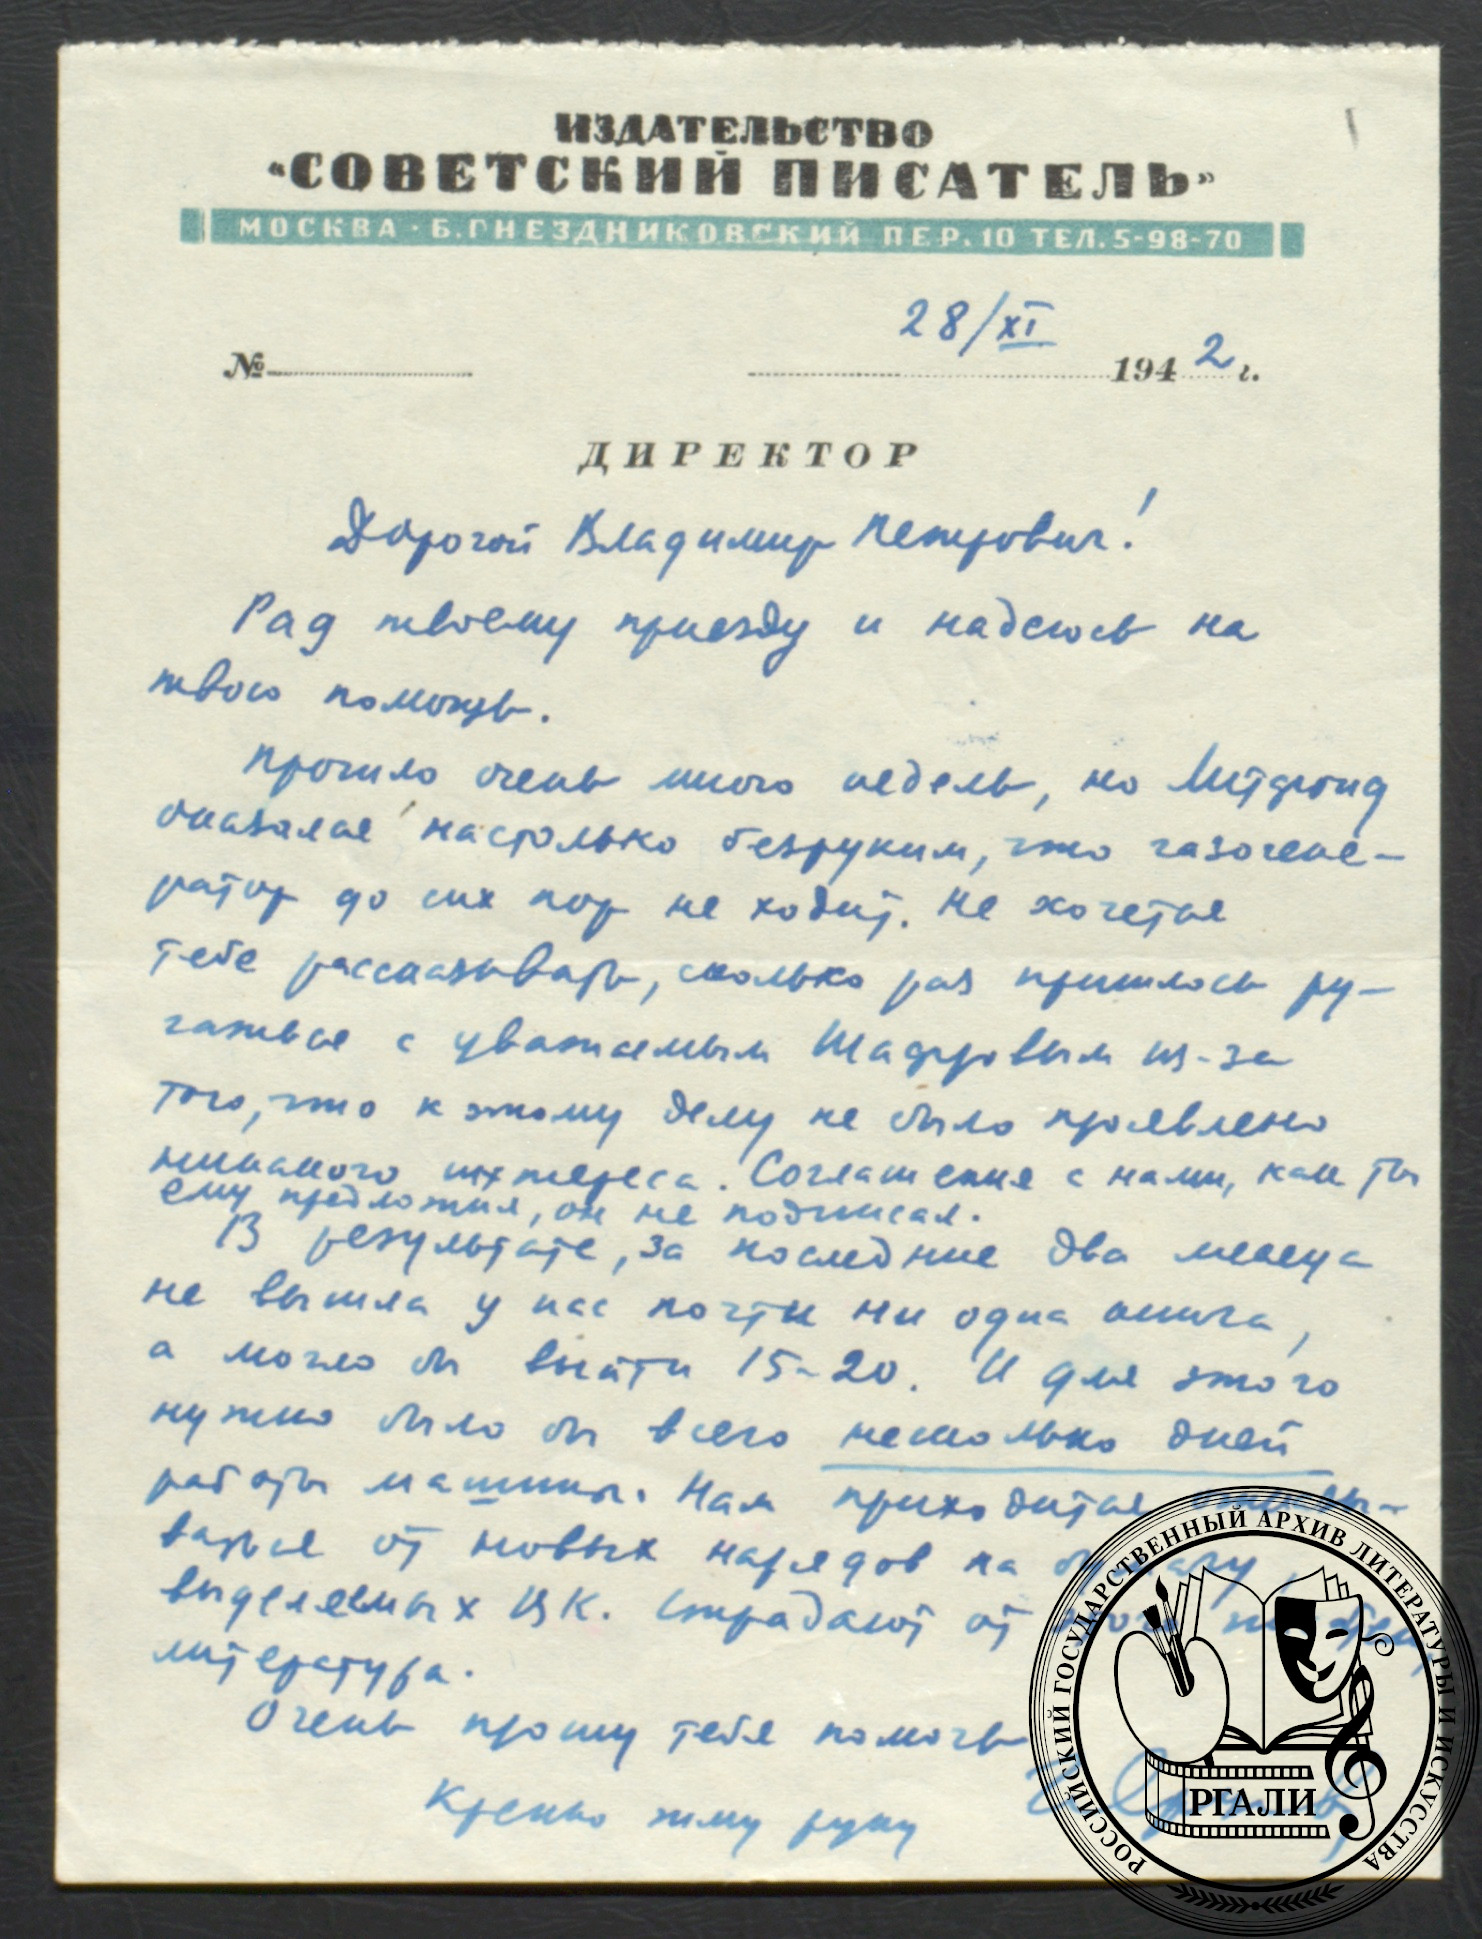 ИЗДАТЕЛЬСТВО
«СОВЕТСКИЙ ПИСАТЕЛЬ»
МОСКВА · Б. ГНЕЗДНИКОВСКИЙ ПЕР. 10 ТЕЛ. 5-98-70
28/XI
№ 1942 г.
ДИРЕКТОР
Дорогой Владимир Петрович!
Рад твоему приезду и надеюсь на
твою помощь.
Прошло очень много недель, но Литфонд
оказался настолько безруким, что газогене-
ратор до сих пор не ходит. Не хочется
тебе рассказывать, сколько раз пришлось ру-
гаться с уважаемым из-за
того, что к этому делу не было проявлено
никакого интереса. Соглашения с нами, как ты
ему предложил, он не подписал.
В результате, за последние два месяца
не вышла у нас почти ни одна книга,
а могло бы выйти 15-20. И для этого
нужно было бы всего несколько дней
работы машины. Нам приходится отказы-
ваться от новых нарядов на бумагу,
выделяемых ЦК. Страдают от этого
литература.
Очень прошу тебя помочь
Крепко жму руку
РОССИЙСКИЙ ГОСУДАРСТВЕННЫЙ АРХИВ ЛИТЕРАТУРЫ И ИСКУССТВА
РГАЛИ